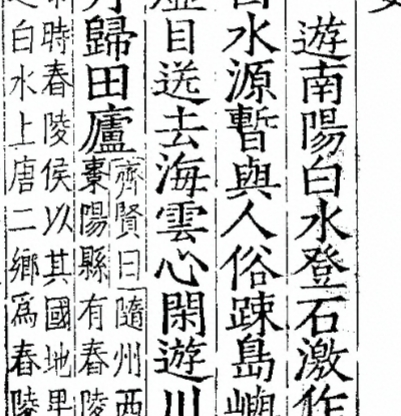 遊南陽白水登石激作
水源暫與人俗踈島嶼
目送去海雲心閑遊川
歸田廬
齊賢曰隨州西
棗陽縣有舂陵
時舂陵侯以其國地卑
白水上唐二鄉為舂陵